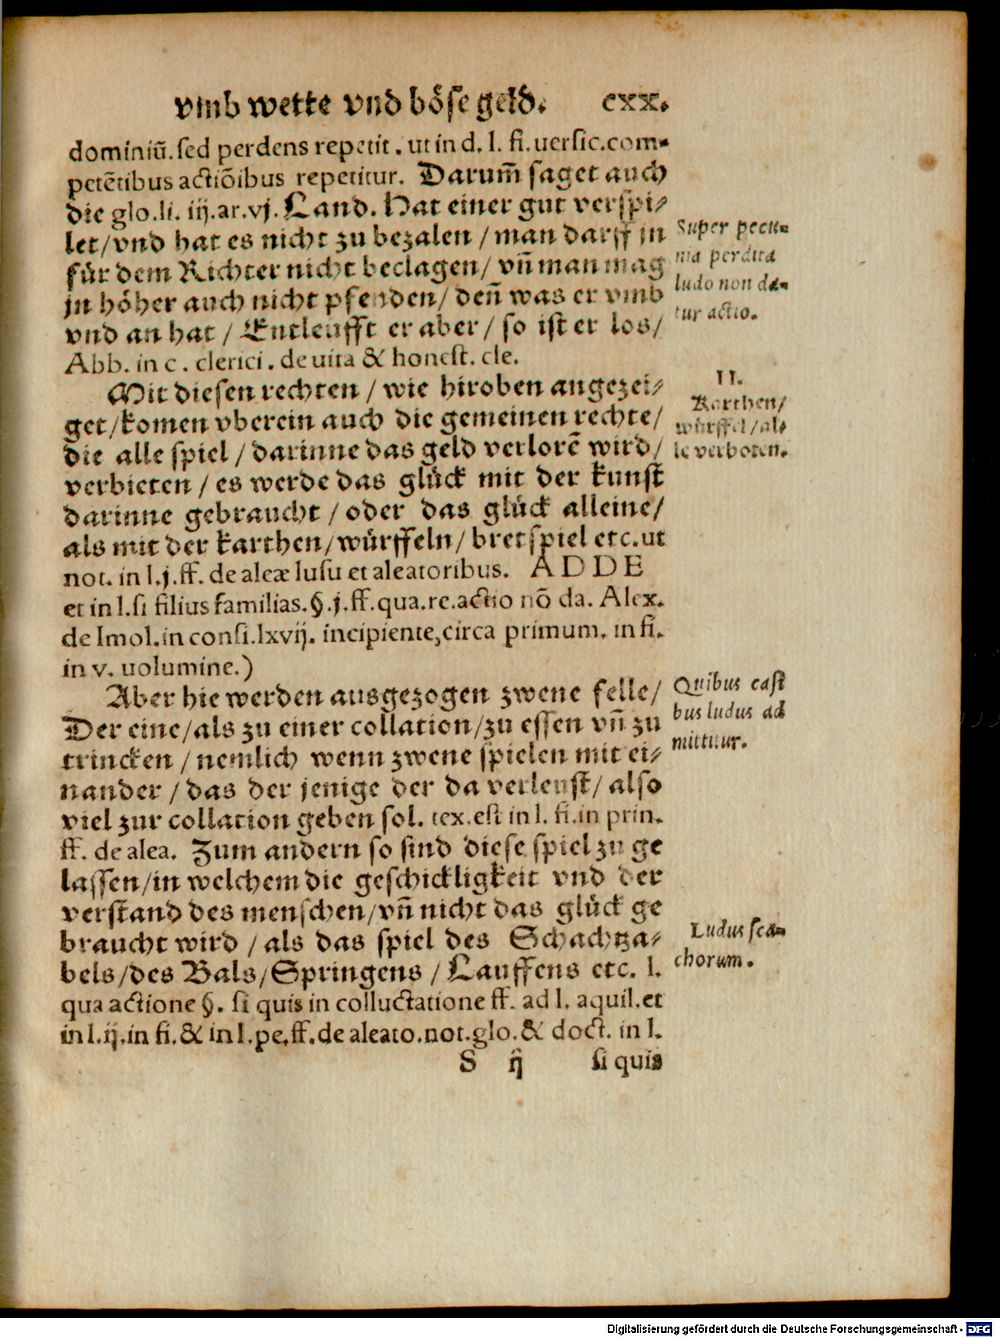 vmb wette vnd böse geld. cxx.
dominiū. sed perdens repetit. ut in d. l. fi. uersic. com-
petētibus actiōibus repetitur. Darum̄ saget auch
die glo. li. iij. ar. vj. Land. Hat einer gut verspi/
let/vnd hat es nicht zu bezalen/man darff jn
für dem Richter nicht beclagen/vn̄ man mag
jn höher auch nicht pfenden/den̄ was er vmb
vnd an hat/Entleufft er aber/so ist er los/
Abb. in c. clerici. de uita & honest. cle.
Super pecu-
nia perdita
ludo non da-
tur actio.
Mit diesen rechten/wie hiroben angezei/
get/komen vberein auch die gemeinen rechte/
die alle spiel/darinne das geld verlorē wird/
verbieten/es werde das glück mit der kunst
darinne gebraucht/oder das glück alleine/
als mit der karthen/würffeln/bretspiel etc. ut
not. in l. j. ff. de aleæ lusu et aleatoribus. ADDE
et in l. si filius familias. §. j. ff. qua. re. actio nō da. Alex.
de Imol. in consi. lxvij. incipiente, circa primum. in fi.
in v. uolumine.)
II.
Karthen/
würffel/al/
le verboten.
Aber hie werden ausgezogen zwene felle/
Der eine/als zu einer collation/zu essen vn̄ zu
trincken/nemlich wenn zwene spielen mit ei/
nander/das der jenige der da verleust/also
viel zur collation geben sol. tex. est in l. fi. in prin.
ff. de alea. Zum andern so sind diese spiel zu ge
lassen/in welchem die geschickligkeit vnd der
verstand des menschen/vn̄ nicht das glück ge
braucht wird/als das spiel des Schachtza/
bels/des Bals/Springens/Lauffens etc. l.
qua actione §. si quis in colluctatione ff. ad l. aquil. et
in l. ij. in fi. & in l. pe. ff. de aleato. not. glo. & doct. in l.
Quibus casi
bus ludus ad
mittitur.
Ludus sca-
chorum.
S ij si quis
Digitalisierung gefördert durch die Deutsche Forschungsgemeinschaft - DFG